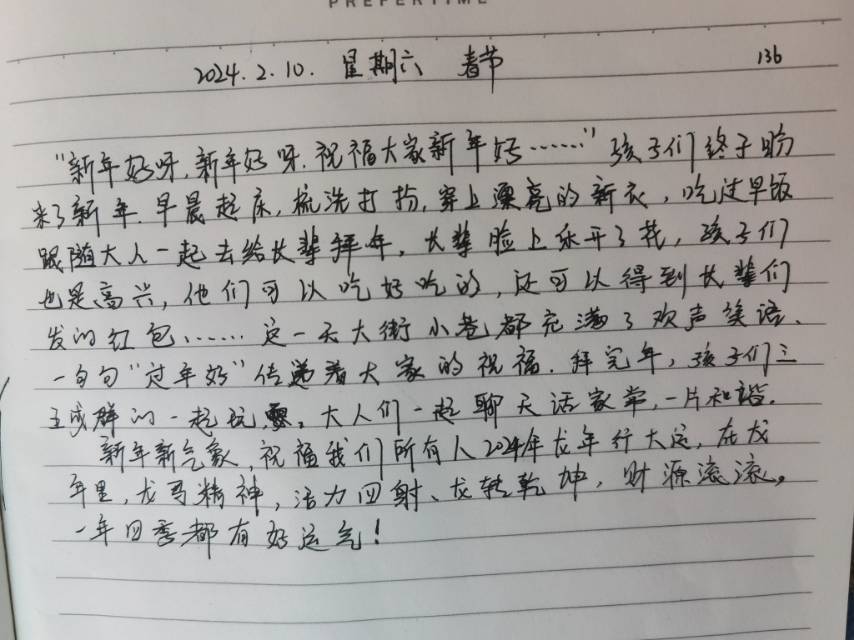 PREFERTIME
2024.2.10. 星期六 春节 136
"新年好呀,新年好呀.祝福大家新年好……"孩子们终于盼
来了新年.早晨起床,梳洗打扮,穿上漂亮的新衣,吃过早饭
跟随大人一起去给长辈拜年,长辈脸上乐开了花,孩子们
也是高兴,他们可以吃好吃的,还可以得到长辈们
发的红包……这一天大街小巷都充满了欢声笑语、
一句句"过年好"传递着大家的祝福.拜完年,孩子们三
五成群的一起玩耍。大人们一起聊天话家常,一片和谐.
新年新气象,祝福我们所有人2024年龙年行大运,在龙
年里,龙马精神,活力四射、龙转乾坤,财源滚滚,
一年四季都有好运气!